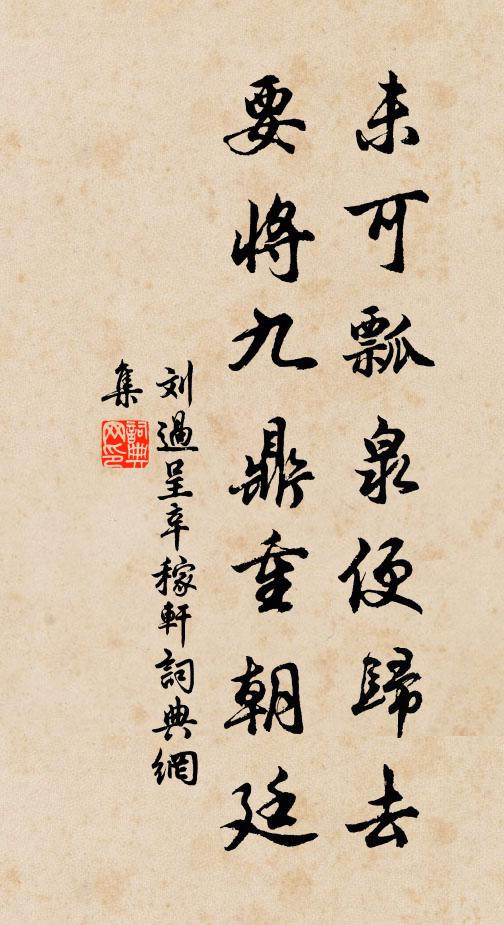 未可瓢泉便歸去
要將九鼎重朝廷
刘過呈辛稼軒詞典網
集
詞典
网印